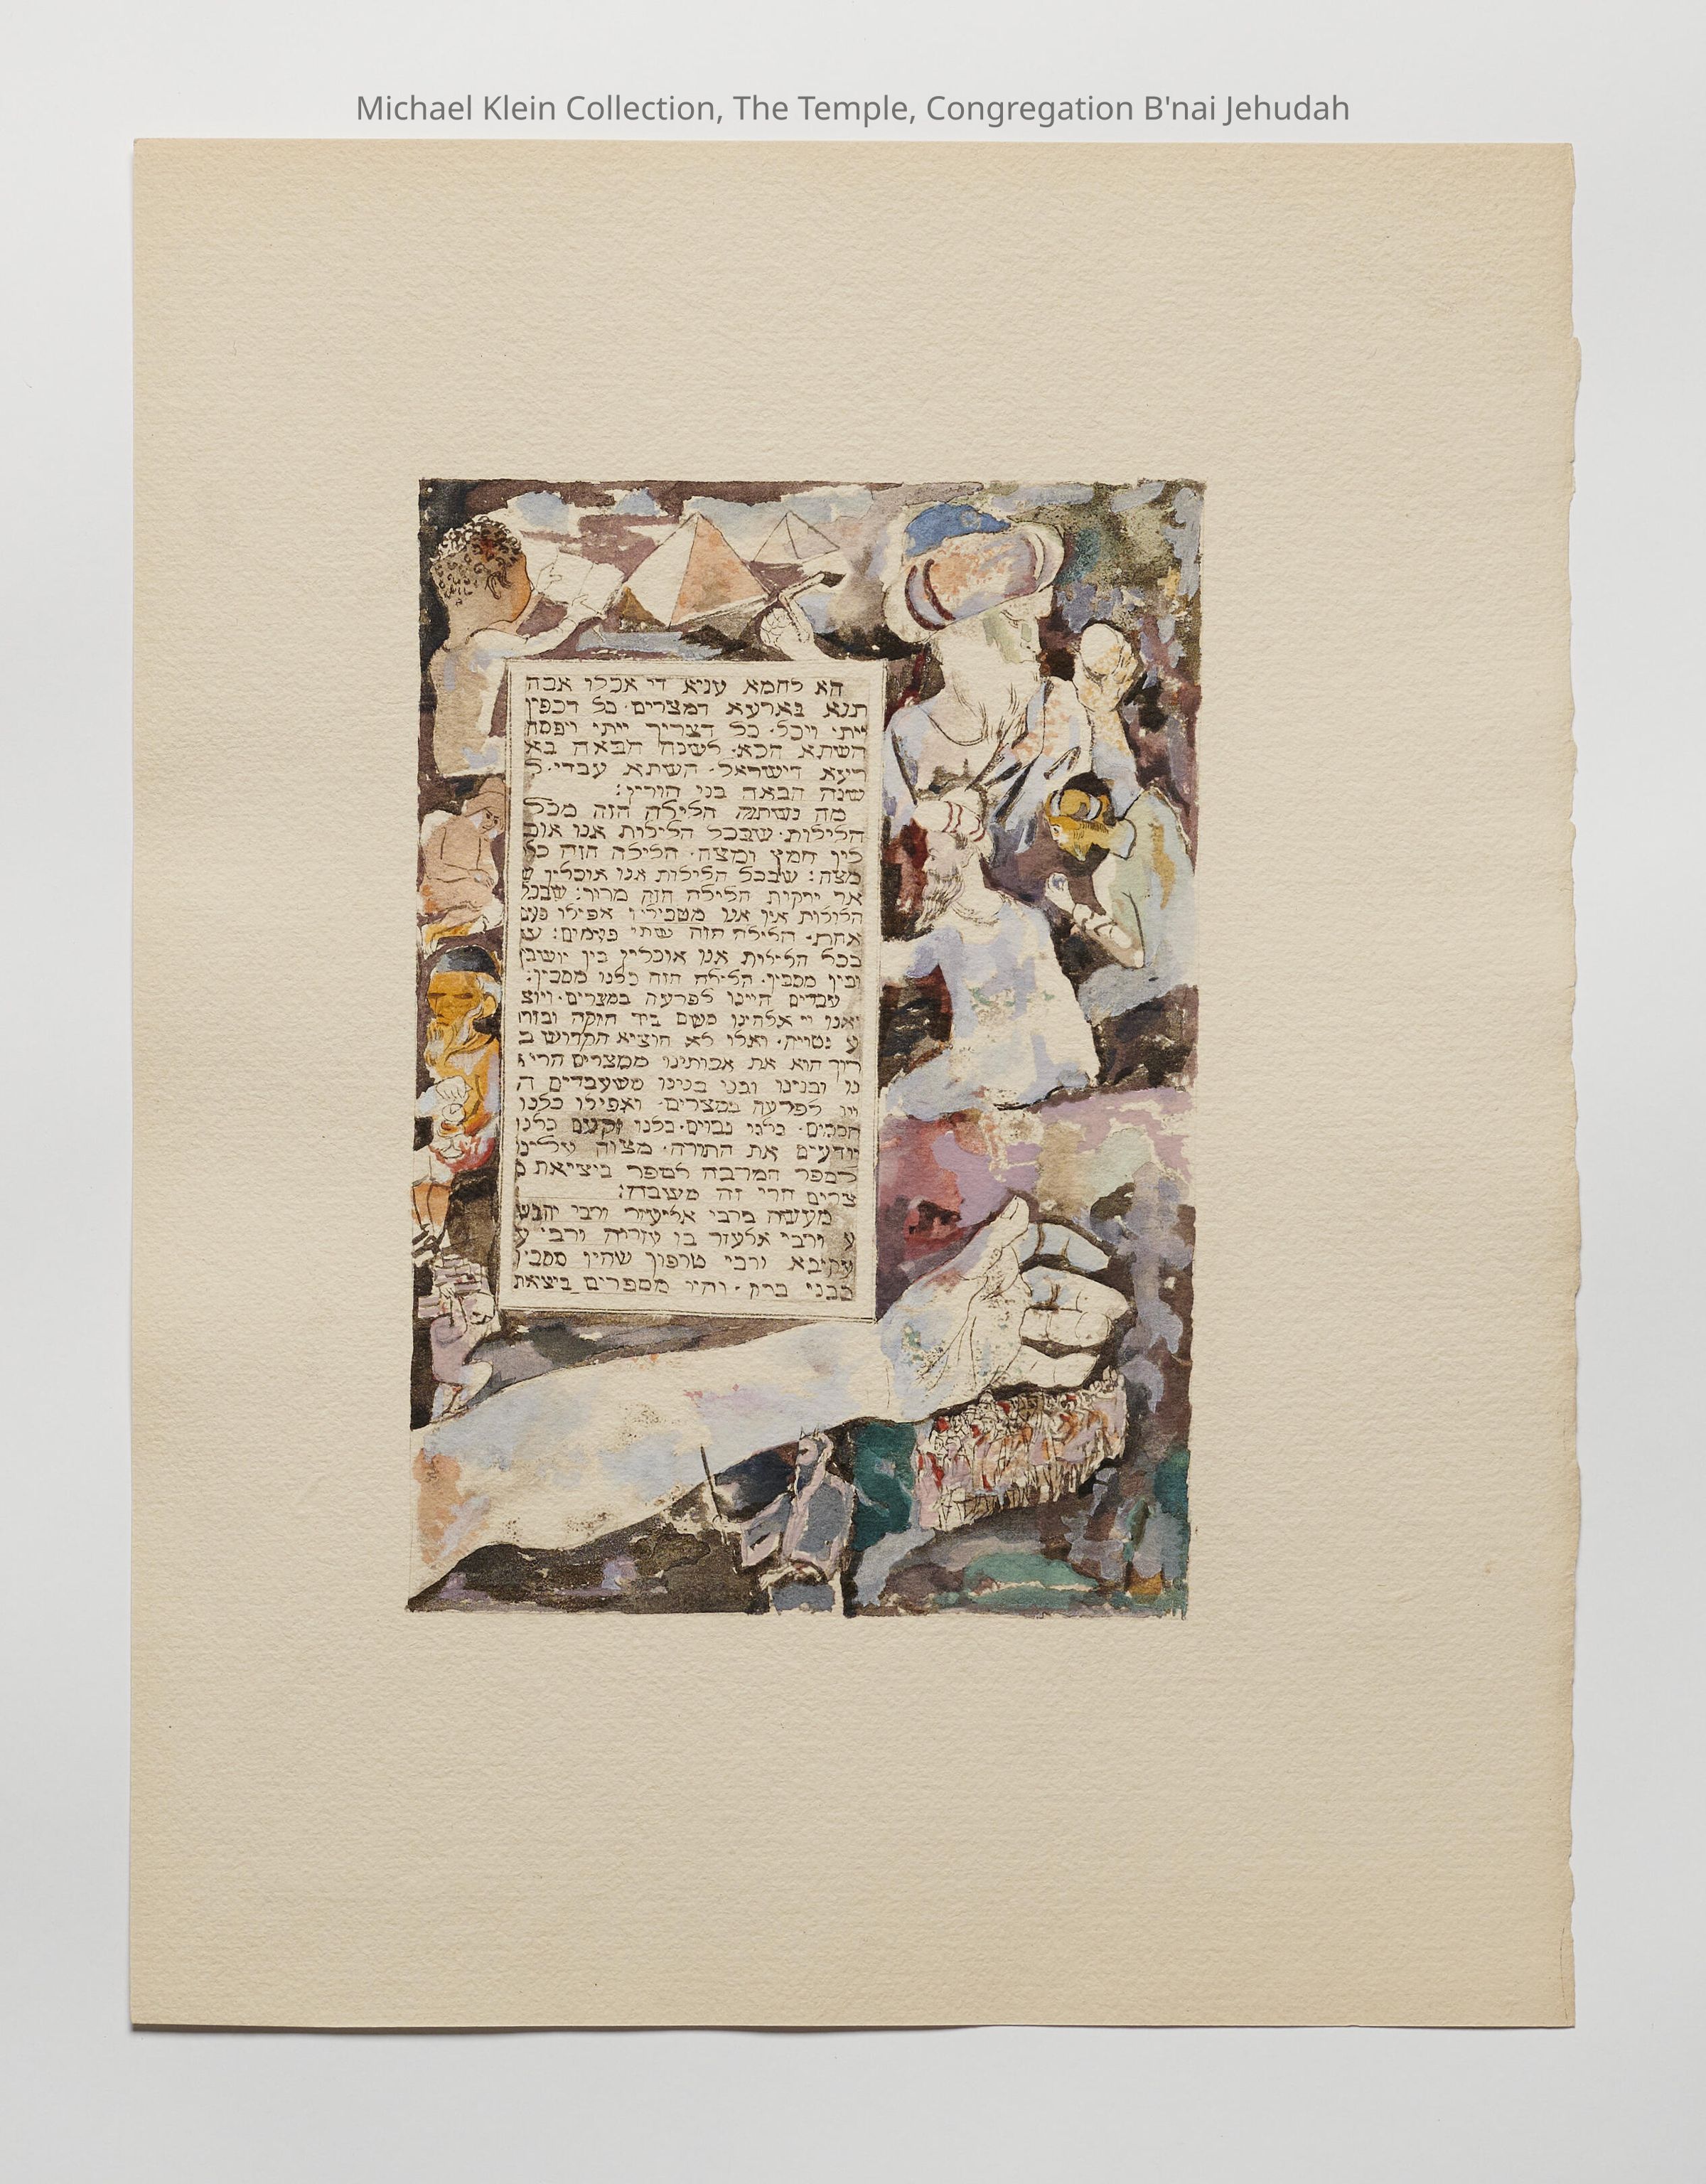 Michael Klein Collection, The Temple, Congregation B'nai Jehudah
הא לחמא עניא די אכלו אבה
תנא בארעא דמצרים· כל דכפין
ייתי ויכל· כל דצריך ייתי ויפסח
השתא הכא· לשנה הבאה בא
רעא דישראל· השתא עבדי· ל
שנה הבאה בני חורין:
מה נשתנה הלילה הזה מכל
הלילות· שבכל הלילות אנו אוכ
לין חמץ ומצה· הלילה הזה כל
מצה: שבכל הלילות אנו אוכלין ש
אר ירקות הלילה הזה מרור: שבכל
הלילות אין אנו מטבילין אפילו פעם
אחת· הלילה הזה שתי פעמים: ש
בכל הלילות אנו אוכלין בין יושבין
ובין מסבין· הלילה הזה כלנו מסבין:
עבדים היינו לפרעה במצרים· ויוצ
יאנו יי אלהינו משם ביד חזקה ובזרו
ע נטויה· ואלו לא הוציא הקדוש ב
רוך הוא את אבותינו ממצרים הרי א
נו ובנינו ובני בנינו משעבדים ה
יינו לפרעה במצרים· ואפילו כלנו
חכמים· כלנו נבונים· כלנו זקנים כלנו
יודעים את התורה· מצוה עלינו
לספר המרבה לספר ביציאת מ
צרים הרי זה משובח:
מעשה ברבי אליעזר ורבי יהוש
ע ורבי אלעזר בן עזריה ורבי ע
קיבא ורבי טרפון שהיו מסבין
בבני ברק· והיו מספרים ביציאת